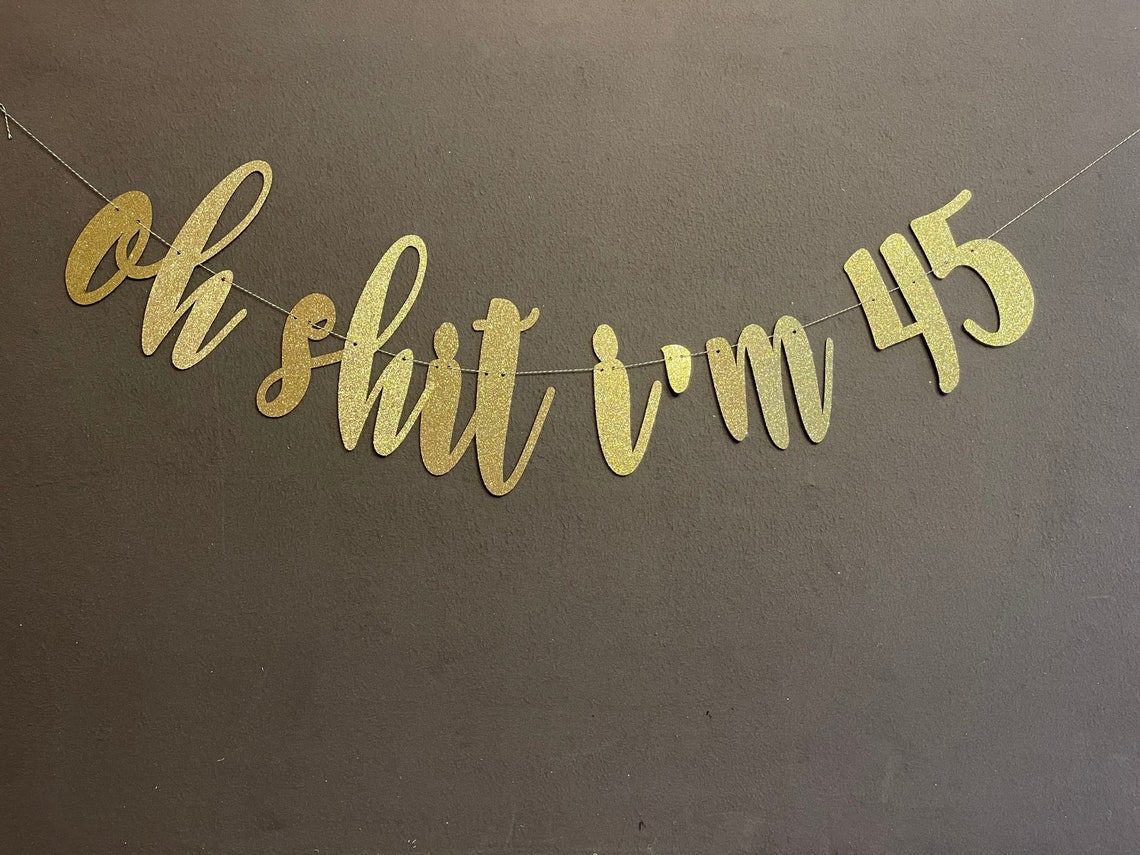 oh shit i'm 45